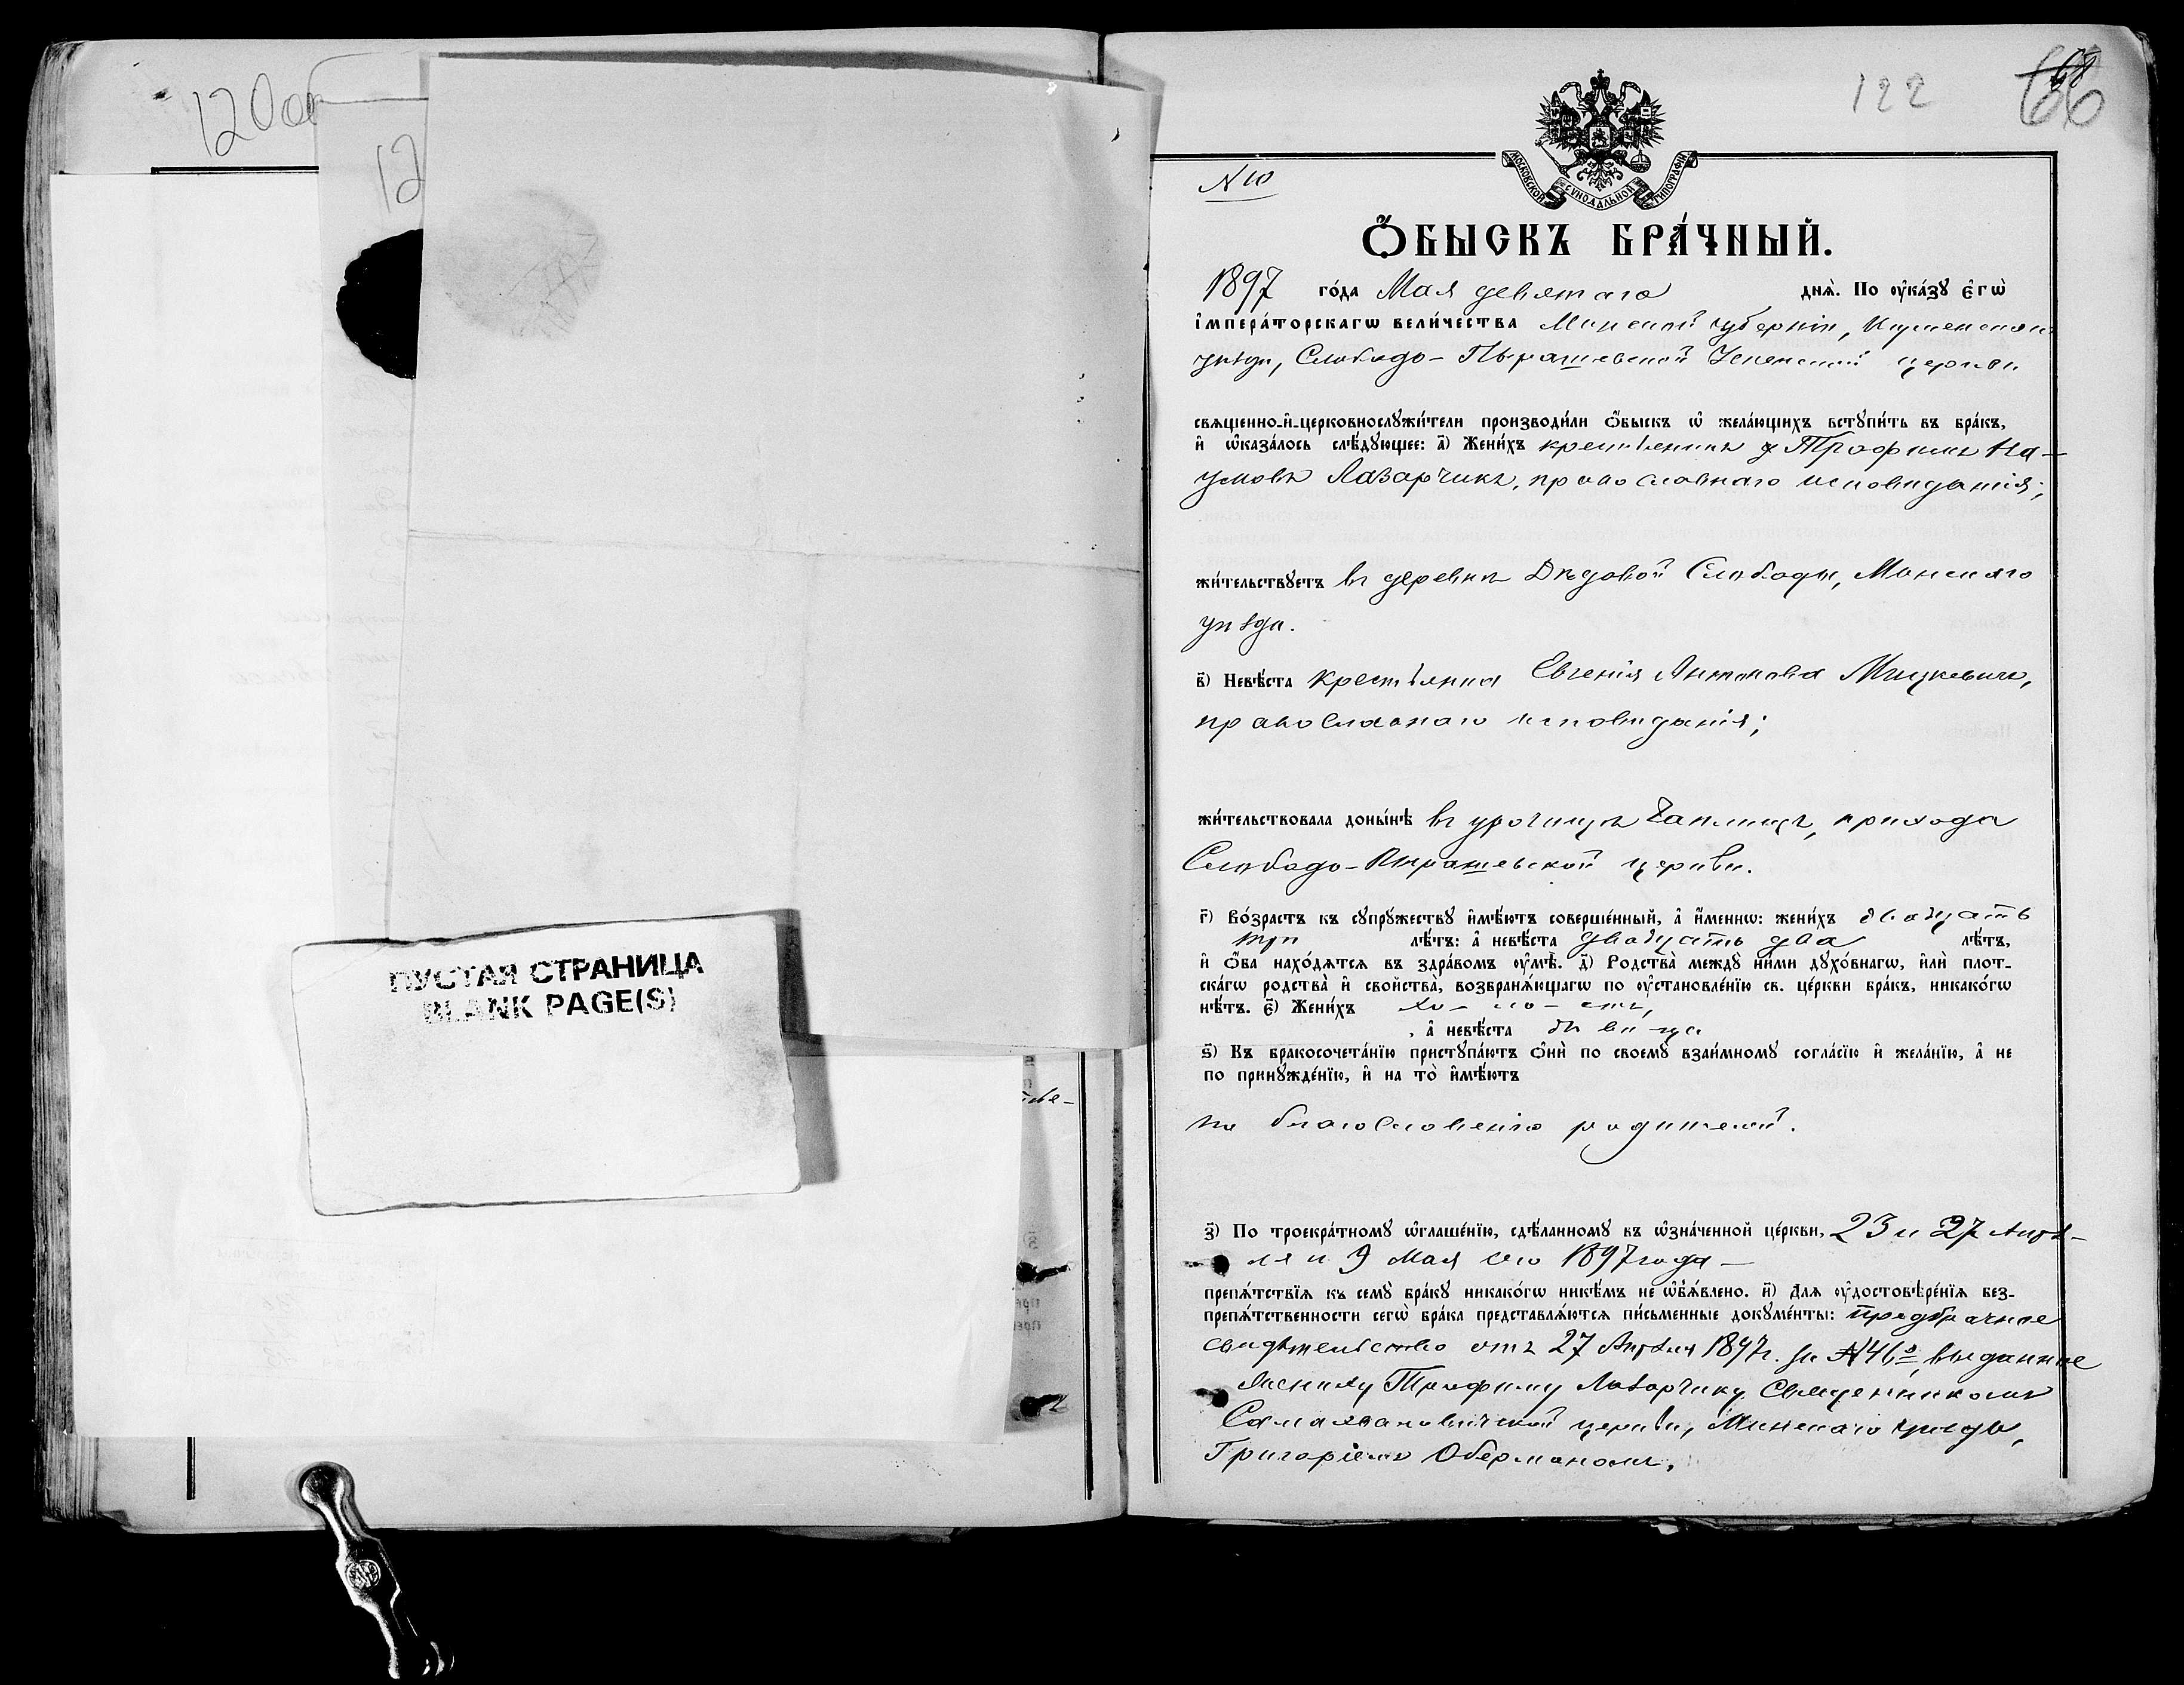 120об
12
ПУСТАЯ СТРАНИЦА
BLANK PAGE(S)
122
66
МОСКОВСКОЙ СѴНОДАЛЬНОЙ ТИПОГРАФІИ
N 10
Ѻ҆БЫСКЪ БРА́ЧНЫЙ.
1897 го́да Мая девятаго днѧ̀. По ᲂу҆ка́зꙋ є҆гѡ̀
і҆мпера́торскагѡ вели́чества Минской губерніи, Игуменскаго
уѣзда, Слободо-Пырашевской Успенской церкви
свѧщенно-и҆-церковнослꙋжи́тели производи́ли ѻ҆́быскъ ѡ҆ жела́ющихъ встꙋпи́ть въ бра́къ,
и҆ ѡ҆каза́лось слѣ́дꙋющее: а҃) Жени́хъ крестьянинъ Трофимъ На-
умовъ Лазарчикъ, православнаго исповѣданія;
жи́тельствꙋетъ въ деревнѣ Дѣдовой Слободѣ, Минскаго
уѣзда.
в҃) Невѣ́ста крестьянка Евгенія Антонова Мицкевичъ,
православнаго исповѣданія;
жи́тельствовала доны́нѣ въ урочищѣ Чаплищѣ, прихода
Слободо-Пырашевской церкви.
г҃) Во́зрастъ къ сꙋпрꙋ́жествꙋ и҆мѣ́ютъ соверше́нный, а҆ и҆́меннѡ: жени́хъ двадцать
три лѣ́тъ: а҆ невѣ́ста двадцать два лѣ́тъ,
и҆ ѻ҆́ба нахо́дѧтсѧ въ здра́вомъ ᲂу҆мѣ̀. д҃) Родства̀ междꙋ̀ ни́ми дꙋхо́внагѡ, и҆лѝ плот-
ска́гѡ родства̀ и҆ свойства̀, возбранѧ́ющагѡ по ᲂу҆становле́нїю св. це́ркви бра́къ, никако́гѡ
нѣ́тъ. є҃) Жени́хъ хо-ло-стъ,
, а҆ невѣ́ста дѣвица
ѕ҃) Къ бракосочета́нїю пристꙋпа́ютъ ѻ҆нѝ по своемꙋ̀ взаи́мномꙋ согла́сїю и҆ жела́нїю, а҆ не
по принꙋжде́нїю, и҆ на то̀ и҆мѣ́ютъ
по благословенію родителей.
з҃) По троекра́тномꙋ ѡ҆глаше́нїю, сдѣ́ланномꙋ въ ѡ҆зна́ченной це́ркви, 23 и 27 Апрѣ-
ля и 9 Мая сего 1897 года —
препѧ́тствїѧ къ семꙋ̀ бра́кꙋ никако́гѡ никѣ́мъ не ѡ҆б̾ѧ́влено. и҃) Длѧ ᲂу҆достовѣре́нїѧ без-
препѧ́тственности сегѡ̀ бра́ка представлѧ́ютсѧ пи́сьменные докꙋме́нты: предбрачное
свидѣтельство отъ 27 Апрѣля 1897 г. за № 46, выданное
жениху Трофиму Лазарчику Священникомъ
Самохваловичской церкви, Минскаго уѣзда,
Григоріемъ Оберманомъ.